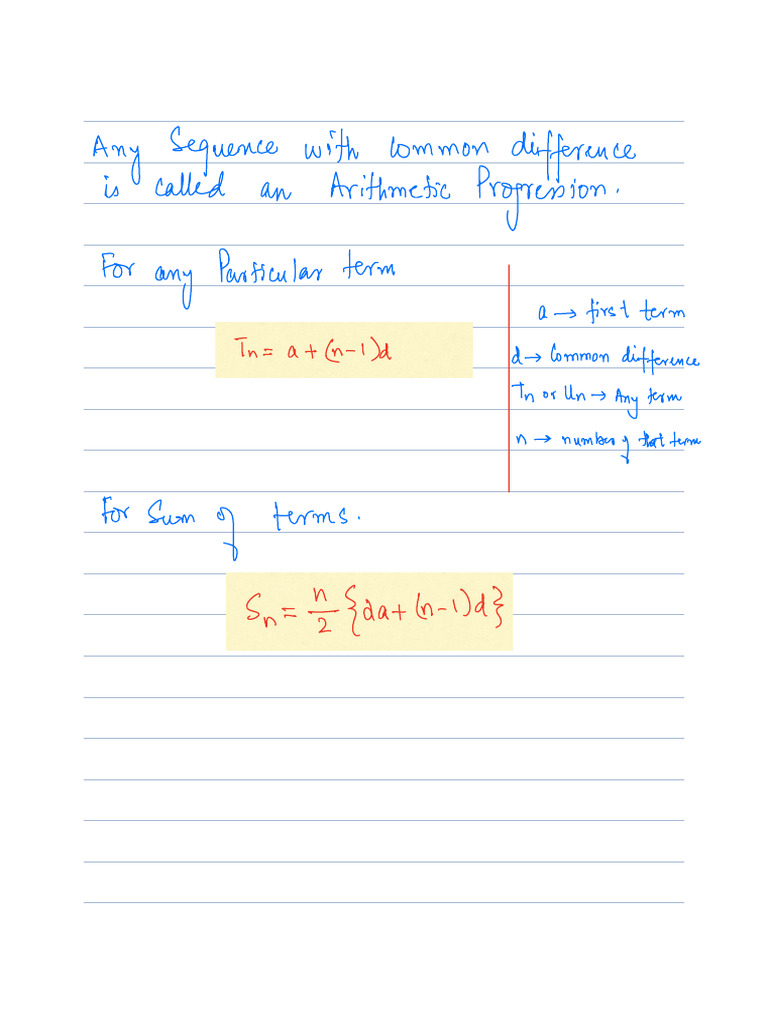 Any Sequence with common difference
is called an Arithmetic Progression.
For any Particular term
Tn = a + (n-1)d
a → first term
d → Common difference
Tn or Un → Any term
n → number of that term
For Sum of terms.
Sn = n/2 {da + (n-1)d}